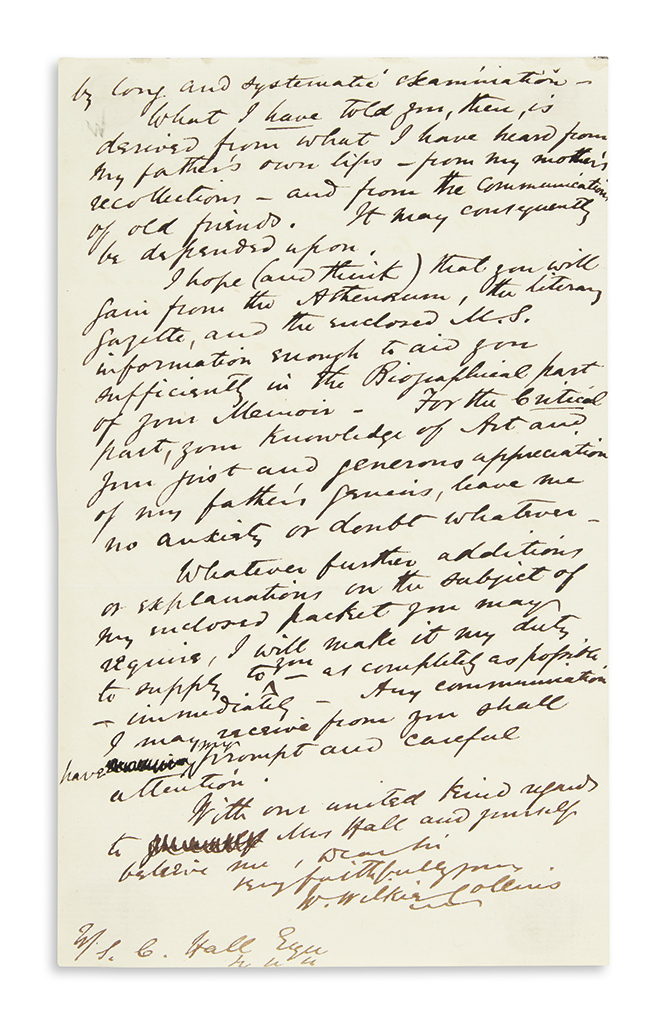 by long and systematic examination —
What I have told you, then, is
derived from what I have heard from
my father's own lips — from my mother's
recollections — and from the communications
of old friends. It may consequently
be depended upon.
I hope (and think) that you will
gain from the Athenaeum, the literary
Gazette, and the enclosed M.S.
information enough to aid you
sufficiently in the Biographical part
of your Memoir — For the Critical
part, your knowledge of Art and
your just and generous appreciation
of my father's genius, leave me
no anxiety or doubt whatever —
Whatever further additions
or explanations on the subject of
my enclosed packet you may
require, I will make it my duty
to supply to you — as completely as possible
— immediately — Any communication
I may receive from you shall
have my prompt and careful
attention.
With our united kind regards
to Mrs Hall and yourself
believe me, Dear Sir
very faithfully yours
W. Wilkie Collins
S. C. Hall Esqre